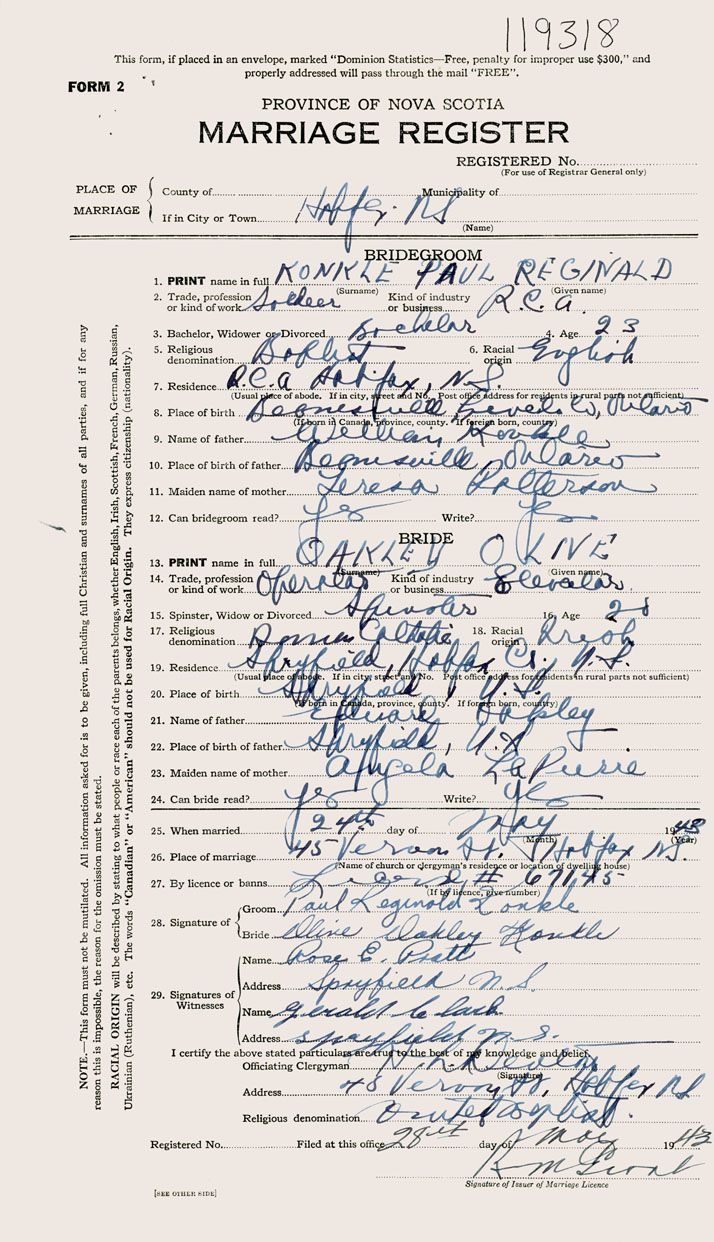 119318
This form, if placed in an envelope, marked "Dominion Statistics—Free, penalty for improper use $300," and
properly addressed will pass through the mail "FREE".
FORM 2
PROVINCE OF NOVA SCOTIA
MARRIAGE REGISTER
REGISTERED No.
(For use of Registrar General only)
PLACE OF MARRIAGE
County of Municipality of
If in City or Town Halifax NS
(Name)
BRIDEGROOM
1. PRINT name in full KONKLE PAUL REGINALD
(Surname) (Given name)
2. Trade, profession or kind of work Soldier Kind of industry or business R.C.A.
3. Bachelor, Widower or Divorced Bachelor 4. Age 23
5. Religious denomination Baptist 6. Racial origin English
7. Residence R.C.A Halifax, N.S.
(Usual place of abode. If in city, street and No. Post office address for residents in rural parts not sufficient)
8. Place of birth Ontario
(If born in Canada, province, county. If foreign born, country)
9. Name of father William Konkle
10. Place of birth of father Ontario
11. Maiden name of mother Teresa Patterson
12. Can bridegroom read? yes Write? yes
BRIDE
13. PRINT name in full OAKLEY OLIVE
(Surname) (Given name)
14. Trade, profession or kind of work Operator Kind of industry or business Elevator
15. Spinster, Widow or Divorced Spinster 16. Age 28
17. Religious denomination Roman Catholic 18. Racial origin
19. Residence Spryfield, Halifax Co. N.S.
(Usual place of abode. If in city, street and No. Post office address for residents in rural parts not sufficient)
20. Place of birth Spryfield, N.S.
(If born in Canada, province, county. If foreign born, country)
21. Name of father Edward Oakley
22. Place of birth of father Spryfield, N.S
23. Maiden name of mother Angela LaPierre
24. Can bride read? yes Write? yes
25. When married 24th day of May 1943
(Month) (Year)
26. Place of marriage 45 Vernon St. Halifax N.S.
(Name of church or clergyman's residence or location of dwelling house)
27. By licence or banns License # 67145
(If by licence, give number)
28. Signature of
Groom Paul Reginald Konkle
Bride Olive Oakley Konkle
29. Signatures of Witnesses
Name Rose E. Pratt
Address Spryfield N.S.
Name Gerald Clark
Address Spryfield N.S.
I certify the above stated particulars are true to the best of my knowledge and belief.
Officiating Clergyman
(Signature)
Address 45 Vernon St, Halifax NS
Religious denomination United Baptist.
Registered No. Filed at this office 28th day of May 1943
Signature of Issuer of Marriage Licence
[SEE OTHER SIDE]
NOTE.—This form must not be mutilated. All information asked for is to be given, including full Christian and surnames of all parties, and if for any
reason this is impossible, the reason for the omission must be stated.
RACIAL ORIGIN will be described by stating to what people or race each of the parents belongs, whether English, Irish, Scottish, French, German, Russian,
Ukrainian (Ruthenian), etc. The words "Canadian" or "American" should not be used for Racial Origin. They express citizenship (nationality).